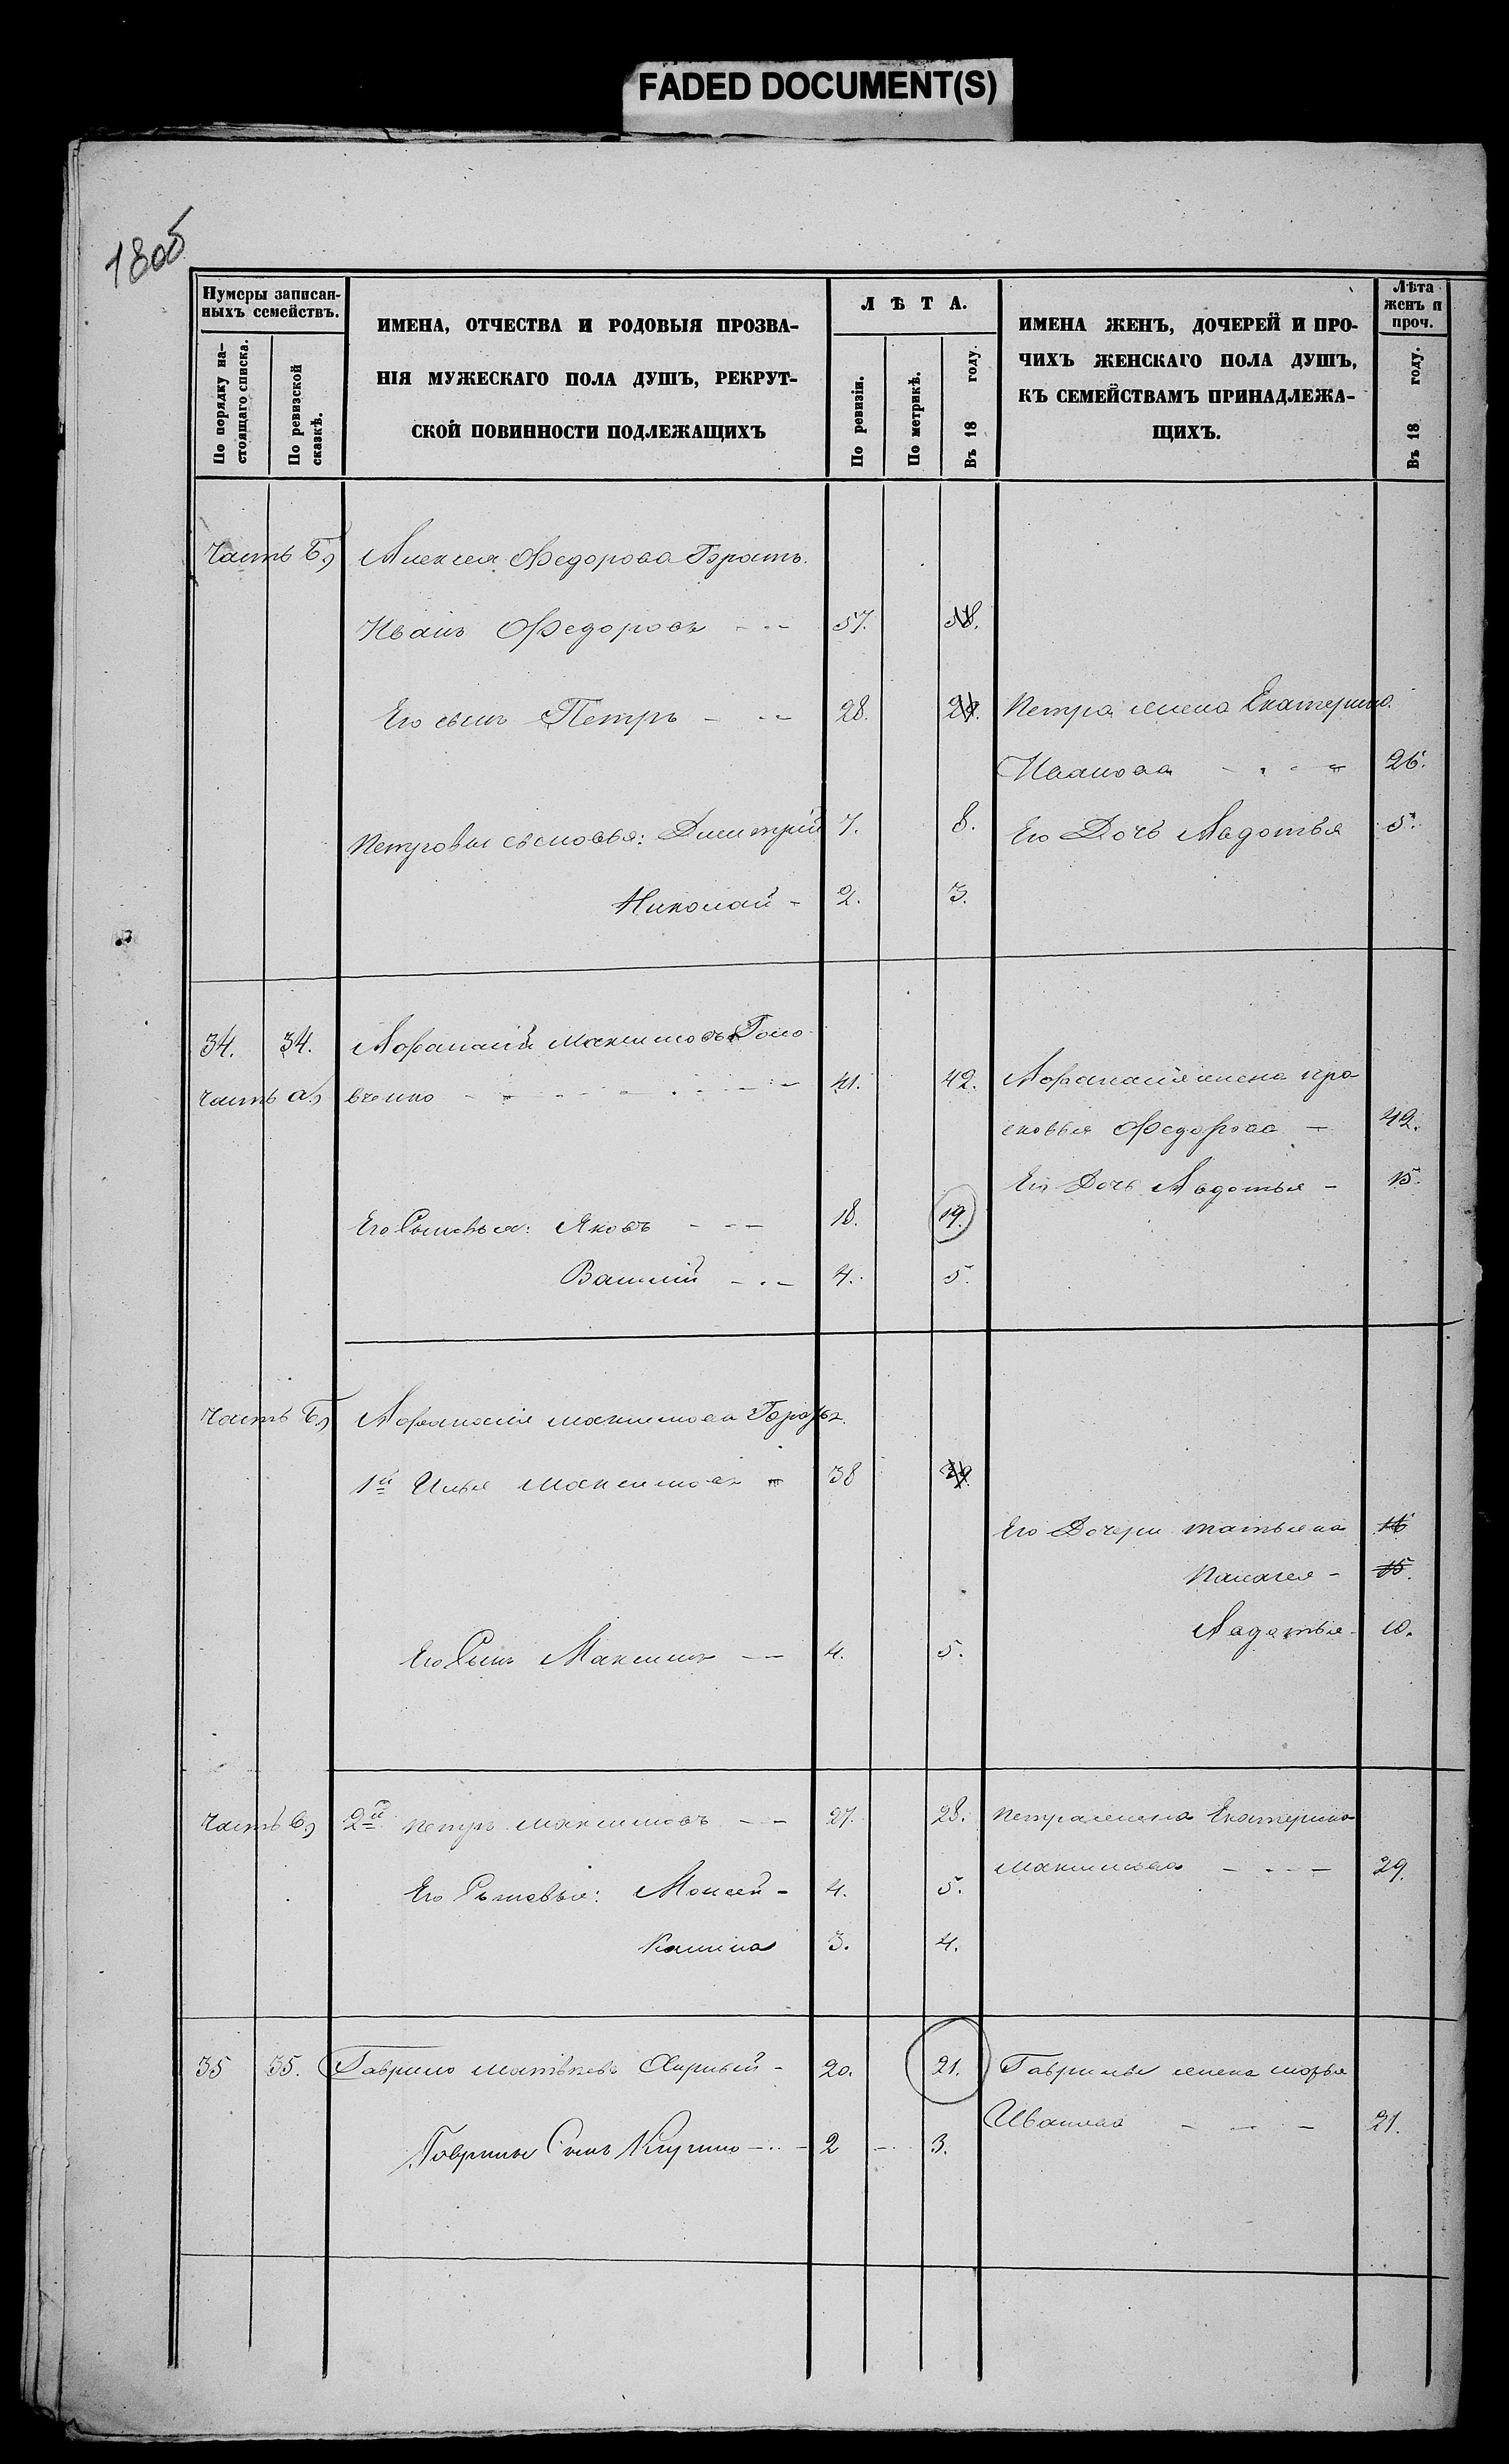 FADED DOCUMENT(S)
1805
Нумеры записан-
ныхъ семействъ.
По порядку на-
стоящаго списка.
По ревизской
сказкѣ.
ИМЕНА, ОТЧЕСТВА И РОДОВЫЯ ПРОЗВА-
НІЯ МУЖЕСКАГО ПОЛА ДУШЪ, РЕКРУТ-
СКОЙ ПОВИННОСТИ ПОДЛЕЖАЩИХЪ
ЛѢТА.
По ревизіи.
По метрикѣ.
Въ 18 году.
ИМЕНА ЖЕНЪ, ДОЧЕРЕЙ И ПРО-
ЧИХЪ ЖЕНСКАГО ПОЛА ДУШЪ,
КЪ СЕМЕЙСТВАМЪ ПРИНАДЛЕЖА-
ЩИХЪ.
Лѣта
женъ и
проч.
Въ 18 году.
Часть Б) Алексея Федорова Братъ
Иванъ Федоровъ - - - 57. 58.
Его сынъ Петръ - - - 28. 29. Петра жена Екатерина
Иванова - - - - 26.
Петровы сыновья: Дмитрій 7. 8. Его Дочь Авдотья 5.
Николай - 2. 3.
34. 34. Афанасій Максимовъ Голо
часть а) вченко - - - - 41. 42. Афанасія жена Пра
сковья Федорова - 42.
Его Дочь Авдотья - 15.
Его Сыновья: Яковъ - - - 18. 19.
Василій - - - 4. 5.
Часть Б) Афанасія Максимова Братья
1й Илья Максимовъ - 38 39.
Его Дочери Татьяна 16
Палагея - 15.
Авдотья - 10.
Его Сынъ Максимъ - - 4. 5.
Часть в) 2й Петръ Максимовъ - - 27. 28. Петра жена Екатерина
Максимова - - - 29.
Его Сыновья: Моисей - 4. 5.
3. 4.
35 35. Гаврило Матвѣевъ - 20. 21. Гаврилы жена Марья
Иванова - - - 21.
Гаврилы Сынъ - - - 2 - 3.